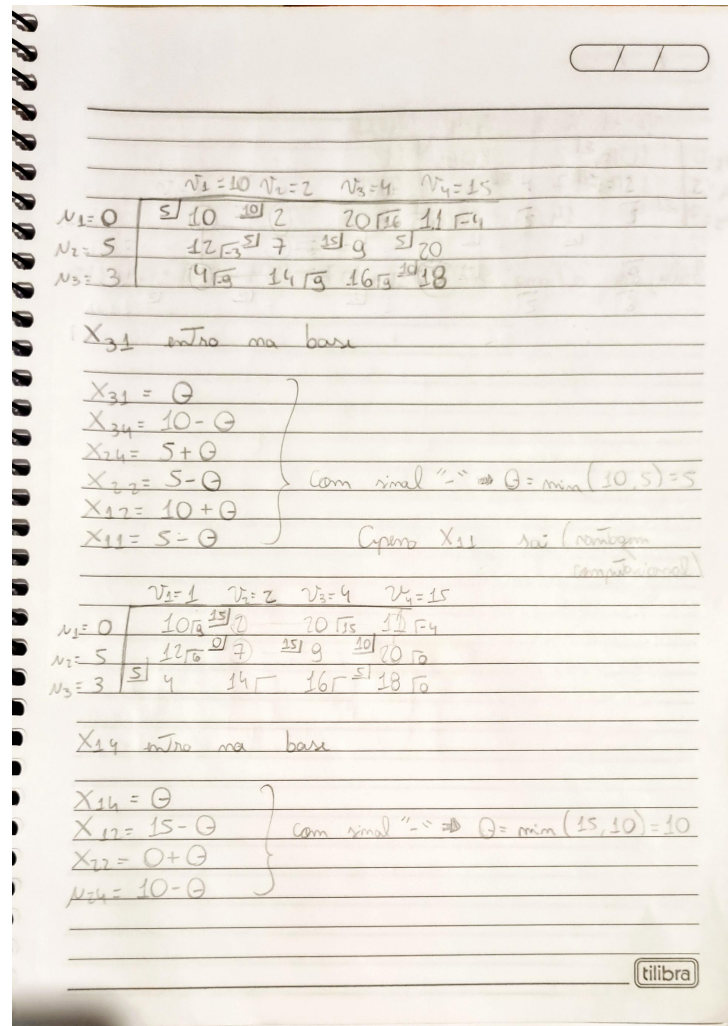 v1=10 v2=2 v3=4 v4=15
u1=0 5 10 10 2 20 16 11 -4
u2=5 12 -3 5 7 15 9 5 20
u3=3 4 -9 14 9 16 9 10 18
X31 entra na base
X31 = θ
X34 = 10-θ
X24 = 5+θ
X22 = 5-θ Com sinal "-" ⇒ θ = min(10,5)=5
X12 = 10+θ
X11 = 5-θ Apenas X11 sai (vantagem
computacional)
v1=1 v2=2 v3=4 v4=15
u1=0 10 9 15 2 20 15 11 -4
u2=5 12 6 0 7 15 9 10 20 0
u3=3 5 4 14 16 5 18 0
X14 entra na base
X14 = θ
X12 = 15-θ Com sinal "-" ⇒ θ = min(15,10)=10
X22 = 0+θ
X24 = 10-θ
tilibra